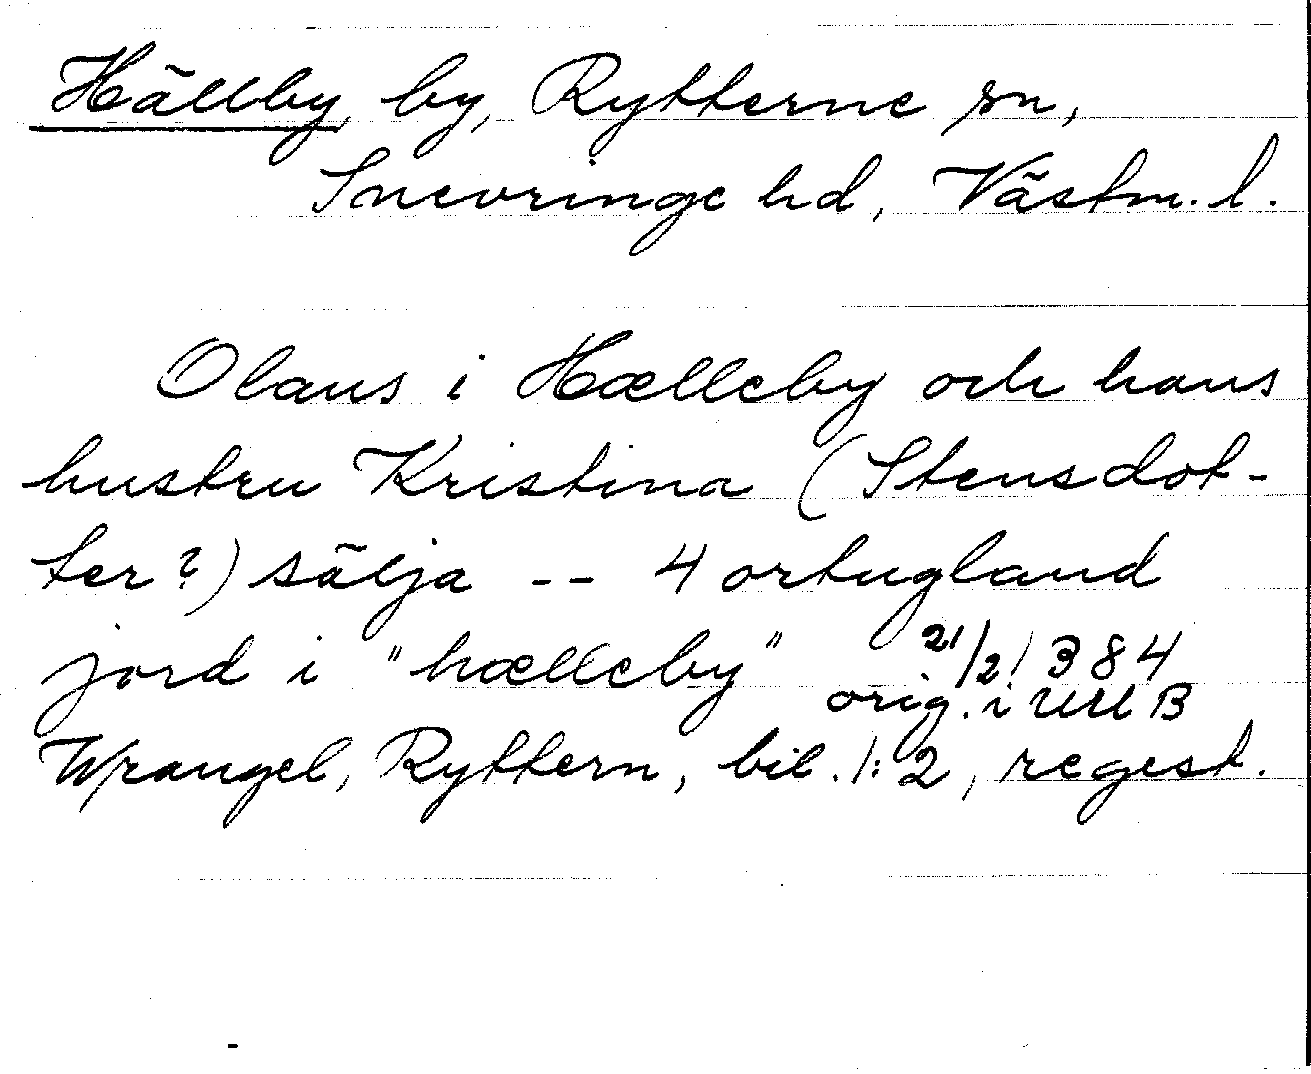 Hällby, by, Rytterne sn,
Snevringe hd, Västm. l.
Olaus i Hælleby och hans
hustru Kristina (Stensdot-
ter?) sälja -- 4 ortugland
jord i "hælleby" 21/2 1384
orig. i UUB
Wrangel, Ryttern, bil. 1:2, regest.